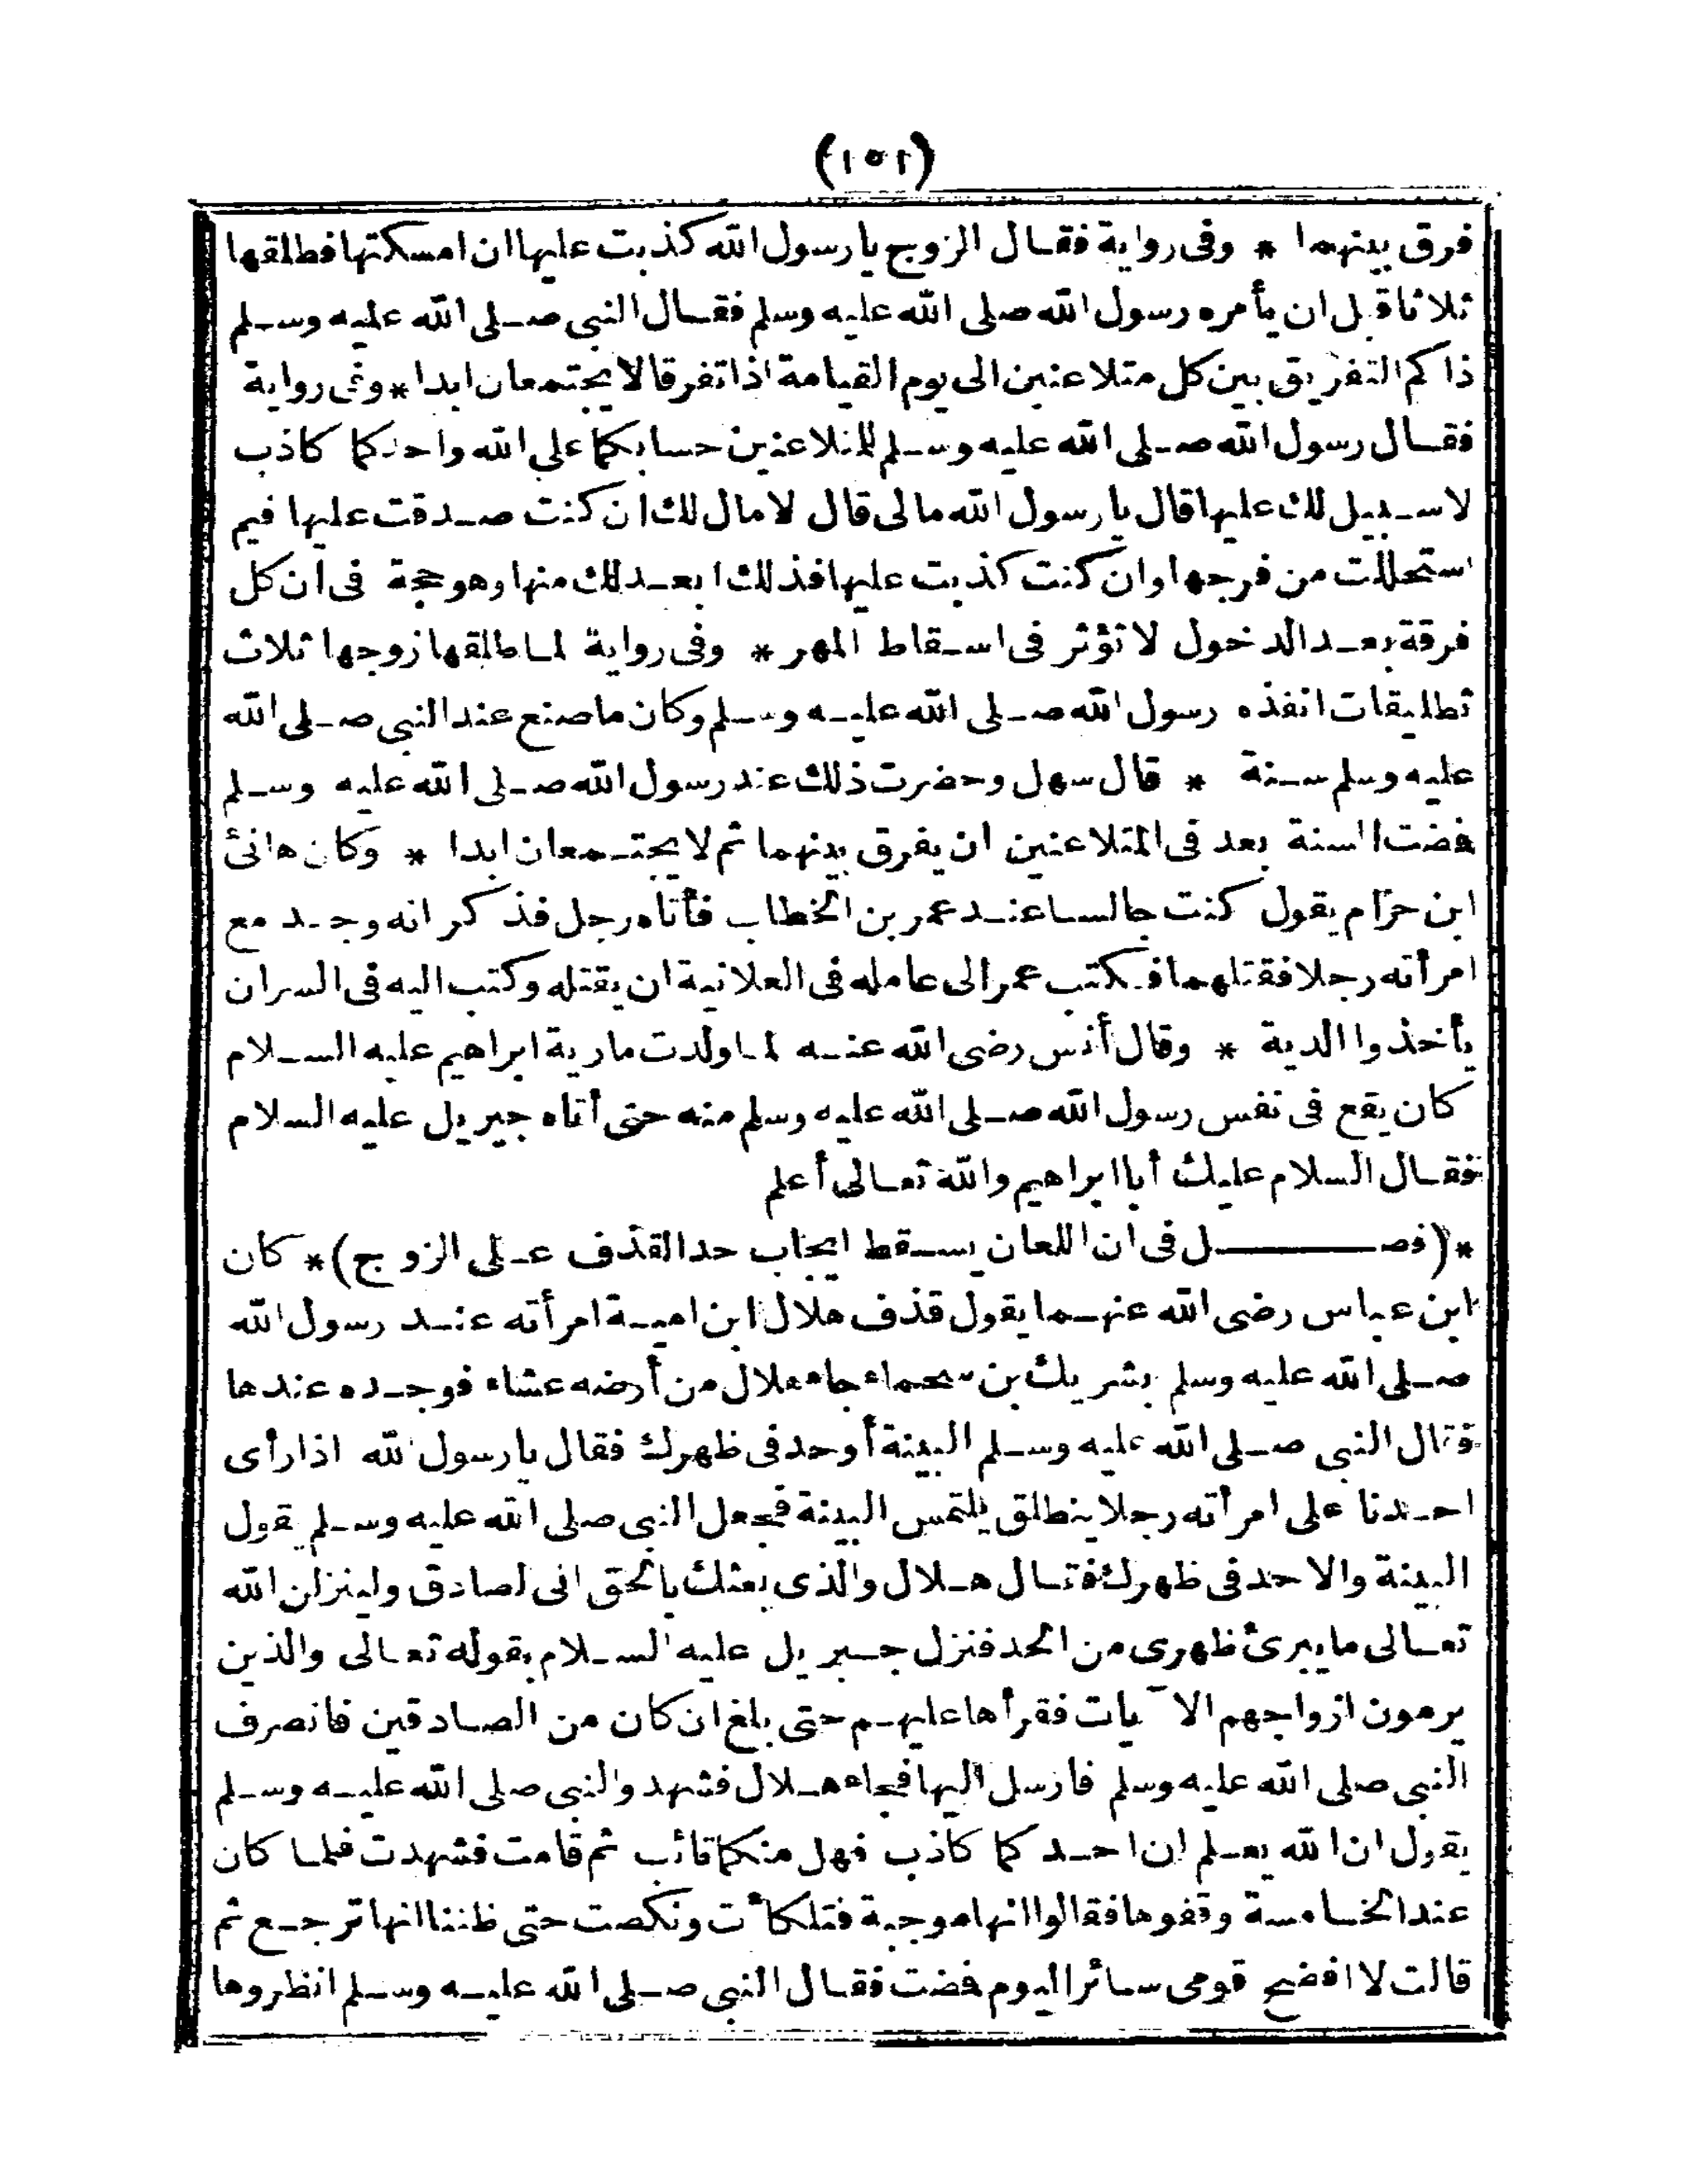 (١٥٢)
فرق بينهما * وفى رواية فقال الزوج يا رسول الله كذبت عليها ان امسكتها فطلقها
ثلاثا قبل ان يأمره رسول الله صلى الله عليه وسلم فقال النبى صلى الله عليه وسلم
ذاكم التفريق بين كل متلاعنين الى يوم القيامة اذا تفرقا لا يجتمعان ابدا * وفى رواية
فقال رسول الله صلى الله عليه وسلم للمتلاعنين حسابكما على الله واحدكما كاذب
لا سبيل لك عليها قال يا رسول الله مالى قال لا مال لك ان كنت صدقت عليها فيم
استحللت من فرجها وان كنت كذبت عليها فذلك ابعد لك منها وهو حجة فى ان كل
فرقة بعد الدخول لا تؤثر فى اسقاط المهر * وفى رواية لما طلقها زوجها ثلاث
تطليقات انفذه رسول الله صلى الله عليه وسلم وكان ما صنع عند النبى صلى الله
عليه وسلم سنة * قال سهل وحضرت ذلك عند رسول الله صلى الله عليه وسلم
فمضت السنة بعد فى المتلاعنين ان يفرق بينهما ثم لا يجتمعان ابدا * وكان هانئ
ابن حزام يقول كنت جالسا عند عمر بن الخطاب فأتاه رجل فذكر انه وجد مع
امرأته رجلا فقتلهما فكتب عمر الى عامله فى العلانية ان يقتله وكتب اليه فى السر ان
يأخذوا الدية * وقال أنس رضى الله عنه لما ولدت مارية ابراهيم عليه السلام
كان يقع فى نفس رسول الله صلى الله عليه وسلم منه حتى أتاه جبريل عليه السلام
فقال السلام عليك أبا ابراهيم والله تعالى أعلم
*(فصل فى ان اللعان يسقط ايجاب حد القذف على الزوج)* كان
ابن عباس رضى الله عنهما يقول قذف هلال ابن امية امرأته عند رسول الله
صلى الله عليه وسلم بشريك بن سحماء جاء هلال من أرضه عشاء فوجده عندها
فقال النبى صلى الله عليه وسلم البينة أو حد فى ظهرك فقال يا رسول الله اذا رأى
احدنا على امرأته رجلا ينطلق يلتمس البينة فجعل النبى صلى الله عليه وسلم يقول
البينة والا حد فى ظهرك فقال هلال والذى بعثك بالحق انى لصادق ولينزلن الله
تعالى ما يبرئ ظهرى من الحد فنزل جبريل عليه السلام بقوله تعالى والذين
يرمون ازواجهم الآيات فقرأها عليهم حتى بلغ ان كان من الصادقين فانصرف
النبى صلى الله عليه وسلم فارسل اليها فجاء هلال فشهد والنبى صلى الله عليه وسلم
يقول ان الله يعلم ان احدكما كاذب فهل منكما تائب ثم قامت فشهدت فلما كان
عند الخامسة وقفوها فقالوا انها موجبة فتلكأت ونكصت حتى ظننا انها ترجع ثم
قالت لا افضح قومى سائر اليوم فمضت فقال النبى صلى الله عليه وسلم انظروها